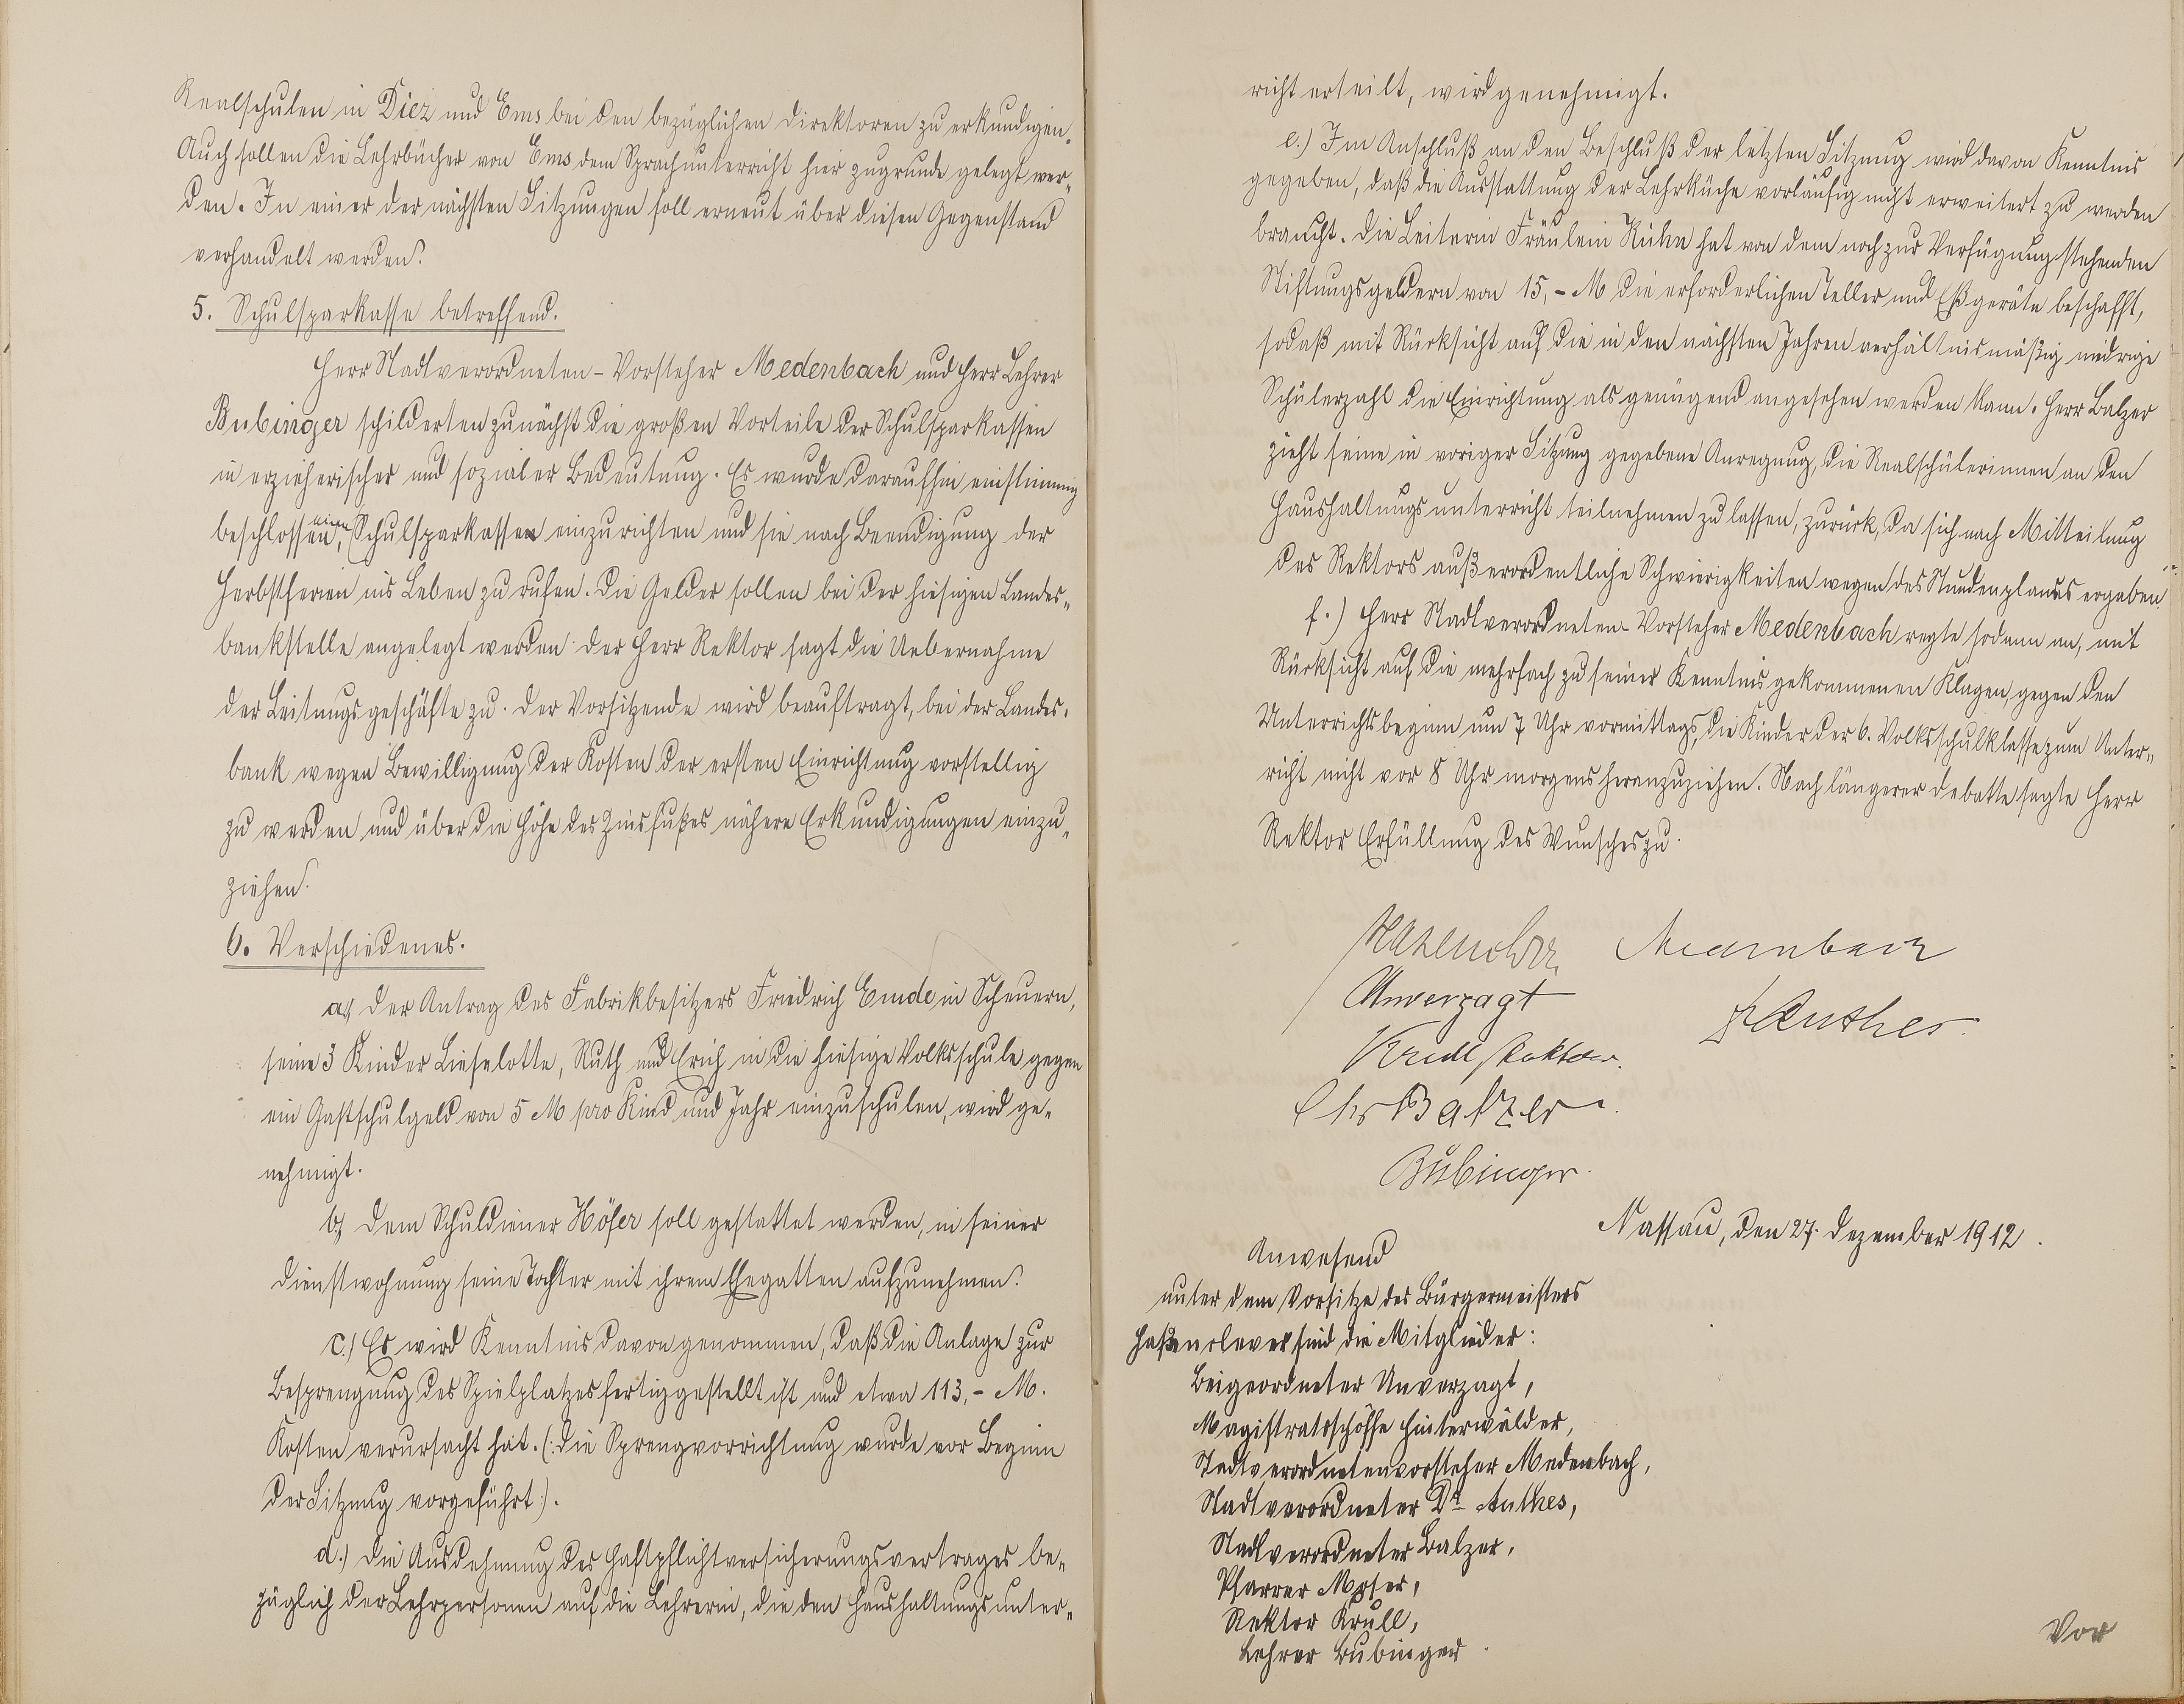 Realschulen in Diez und Ems bei den bezüglichen Direktoren zu erkundigen.
Auch sollen die Lehrbücher von Ems dem Sprachunterricht hier zugrunde gelegt wer-
den. In einer der nächsten Sitzungen soll erneut über diesen Gegenstand
verhandelt werden.
5. Schulsparkasse betreffend.
Herr Stadtverordneten-Vorsteher Medenbach und Herr Lehrer
Bubinger schilderten zunächst die großen Vorteile der Schulsparkassen
in erzieherischer und sozialer Bedeutung. Es wurde daraufhin einstimmig
beschlossen, eine Schulsparkasse einzurichten und sie nach Beendigung der
Herbstferien ins Leben zu rufen. Die Gelder sollen bei der hiesigen Landes-
bankstelle angelegt werden. Der Herr Rektor sagt die Uebernahme
der Leitungsgeschäfte zu. Der Vorsitzende wird beauftragt, bei der Landes-
bank wegen Bewilligung der Kosten der ersten Einrichtung vorstellig
zu werden und über die Höhe des Zinsfußes nähere Erkundigungen einzu-
ziehen.
6. Verschiedenes.
a., Der Antrag des Fabrikbesitzers Friedrich Emde in Scheuern,
seine 3 Kinder Lieselotte, Ruth und Erich in die hiesige Volksschule gegen
ein Gastschulgeld von 5 M pro Kind und Jahr einzuschulen, wird ge-
nehmigt.
b., Dem Schuldiener Höfer soll gestattet werden, in seiner
Dienstwohnung seine Tochter mit ihrem Ehegatten aufzunehmen.
c.) Es wird Kenntnis davon genommen, daß die Anlage zur
Besprengung des Spielplatzes fertiggestellt ist und etwa 113,- M.
Kosten verursacht hat. (: Die Sprengvorrichtung wurde vor Beginn
der Sitzung vorgeführt :).
d.) Die Ausdehnung des Haftpflichtversicherungsvertrages be-
züglich der Lehrpersonen auf die Lehrerin, die den Haushaltungsunter-
richt erteilt, wird genehmigt.
e.) Im Anschluß an den Beschluß der letzten Sitzung wird davon Kenntnis
gegeben, daß die Ausstattung der Lehrküche vorläufig nicht erweitert zu werden
braucht. Die Leiterin Fräulein Kuhn hat von dem noch zur Verfügung stehenden
Stiftungsgeldern von 15,- M die erforderlichen Teller und Eßgeräte beschafft,
sodaß mit Rücksicht auf die in den nächsten Jahren verhältnismäßig niedrige
Schülerzahl die Einrichtung als genügend angesehen werden kann. Herr Balzer
zieht seine in voriger Sitzung gegebene Anregung, die Realschülerinnen an den
Haushaltungsunterricht teilnehmen zu lassen, zurück, da sich nach Mitteilung
des Rektors außerordentliche Schwierigkeiten wegen des Stundenplanes ergaben.
f.) Herr Stadtverordneten-Vorsteher Medenbach regte sodann an, mit
Rücksicht auf die mehrfach zu seiner Kenntnis gekommenen Klagen, gegen den
Unterrichtsbeginn um 7 Uhr vormittags, die Kinder der 6. Volksschulklasse zum Unter-
richt nicht vor 8 Uhr morgens heranzuziehen. Nach längerer Debatte sagte Herr
Rektor Erfüllung des Wunsches zu.
Hasenclever Medenbach
Unverzagt
Dr Anthes
Krull Rektor.
Chr Balzer.
Bubinger
Nassau, den 27. Dezember 1912.
Anwesend
unter dem Vorsitze des Bürgermeisters
Hasenclever sind die Mitglieder:
Beigeordneter Unverzagt,
Magistratsschöffe Hinterwälder,
Stadtverordnetenvorsteher Medenbach,
Stadtverordneter Dr. Anthes,
Stadtverordneter Balzer,
Pfarrer Moser,
Rektor Krull,
Lehrer Bubinger.
Vor